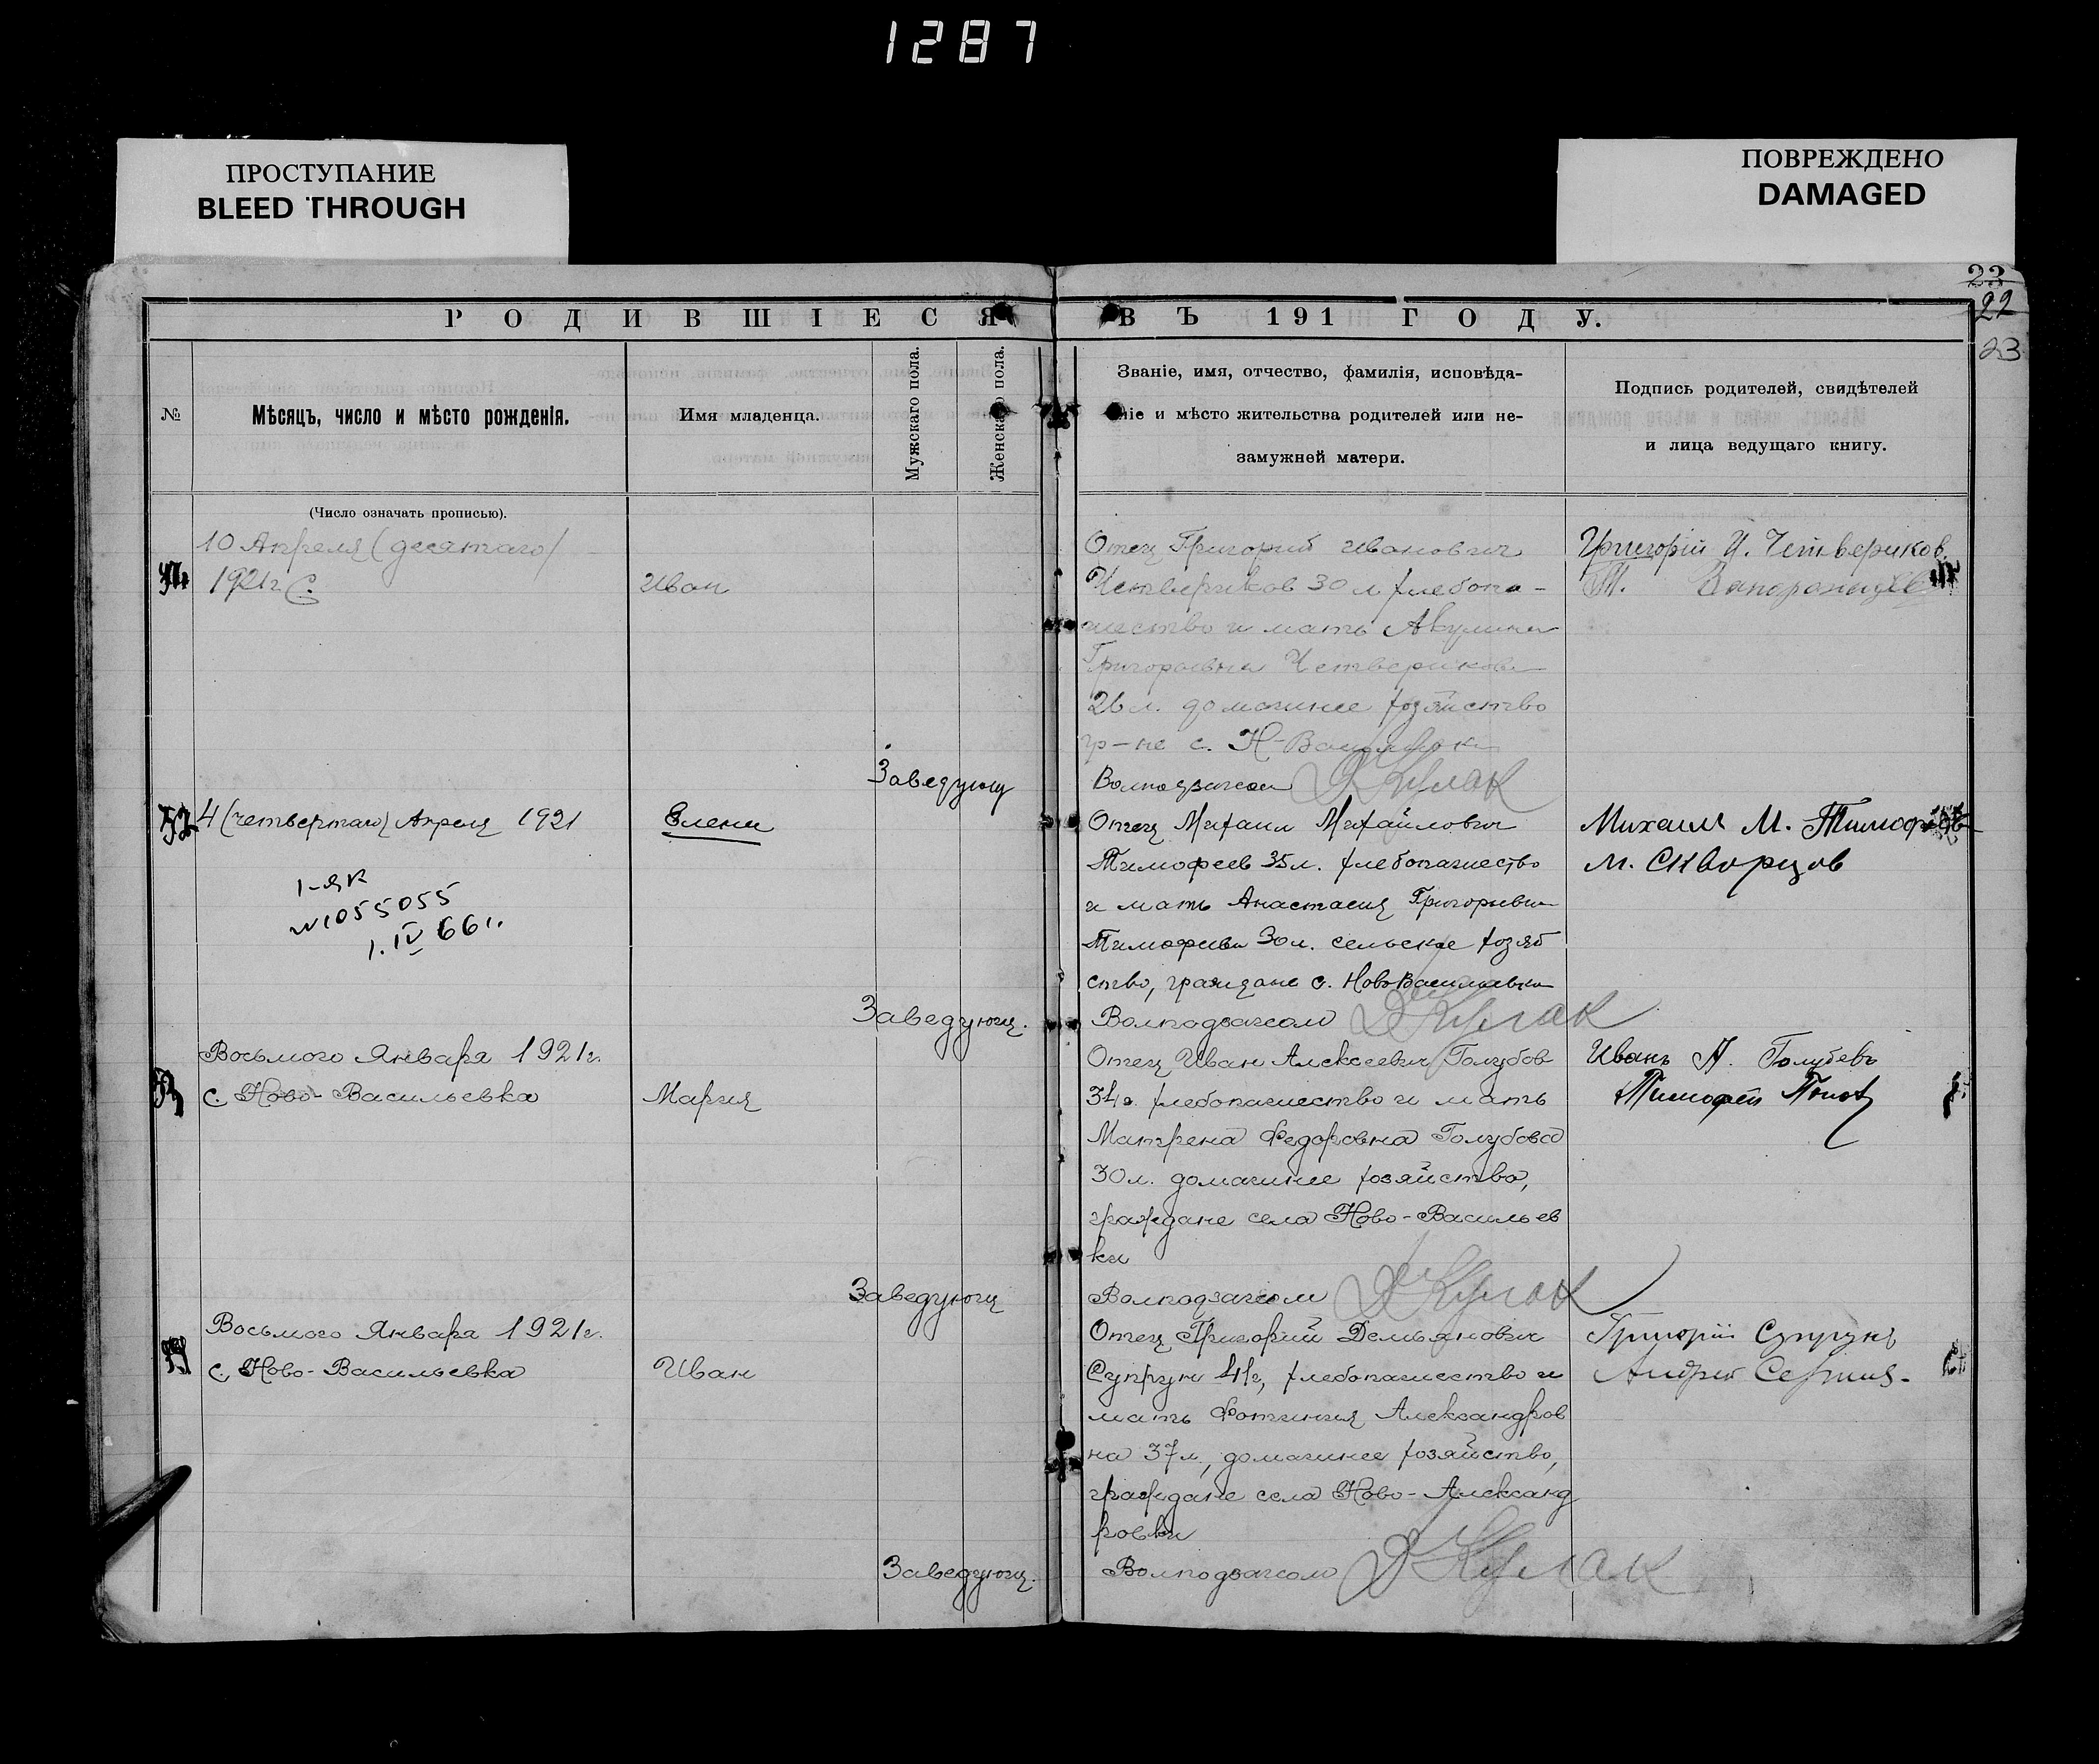 1287
ПРОСТУПАНИЕ
BLEED THROUGH
ПОВРЕЖДЕНО
DAMAGED
23
22
23
РОДИВШІЕСЯ ВЪ 191 ГОДУ.
№
Мѣсяцъ, число и мѣсто рожденія.
Имя младенца.
Мужскаго пола.
Женскаго пола.
Званіе, имя, отчество, фамилія, исповѣда-
ніе и мѣсто жительства родителей или не-
замужней матери.
Подпись родителей, свидѣтелей
и лица ведущаго книгу.
(Число означать прописью).
10 Апреля (десятаго)
1921г С.
Иван
Отец Григорий Иванович
Четвериков 30 л хлебопа-
шество и мать Акулина
Григорьевна Четверикова
26 л. домашнее хозяйство
гр-не с. Н-Васильевки
Григорій И. Четвериков.
Т. Запорожцев
Заведующ
Волподзагсом ДКулак
52
4 (четвертаго) Апреля 1921
Елена
1-ЯК
№1055055
1.IV 66г.
Отец Михаил Михайлович
Тимофеев 35 л. хлебопашество
и мать Анастасия Григорьевна
Тимофеева 30 л. сельское хозяй
ство, граждане с. Ново Васильевки
Михаил М. Тимофеев
М. Скворцов
Заведующ.
Волподзагсом ДКулак
53
Восьмого Января 1921г.
с. Ново-Васильевка
Мария
Отец Иван Алексеевич Голубов
34г. хлебопашество и мать
Матрена Федоровна Голубова
30 л. домашнее хозяйство,
граждане села Ново-Васильев
ки
Иванъ А. Голубевъ
Тимофей Попов
Заведующ
Волподзагсом ДКулак
54
Восьмого Января 1921г.
с. Ново-Васильевка
Иван
Отец Григорий Демьянович
Супрун 41г, хлебопашество и
мать Фотиния Александров
на 37 л, домашнее хозяйство,
граждане села Ново-Александ
ровки
Григорій Супрунъ
Андрей
Заведующ.
Волподзагсом ДКулак